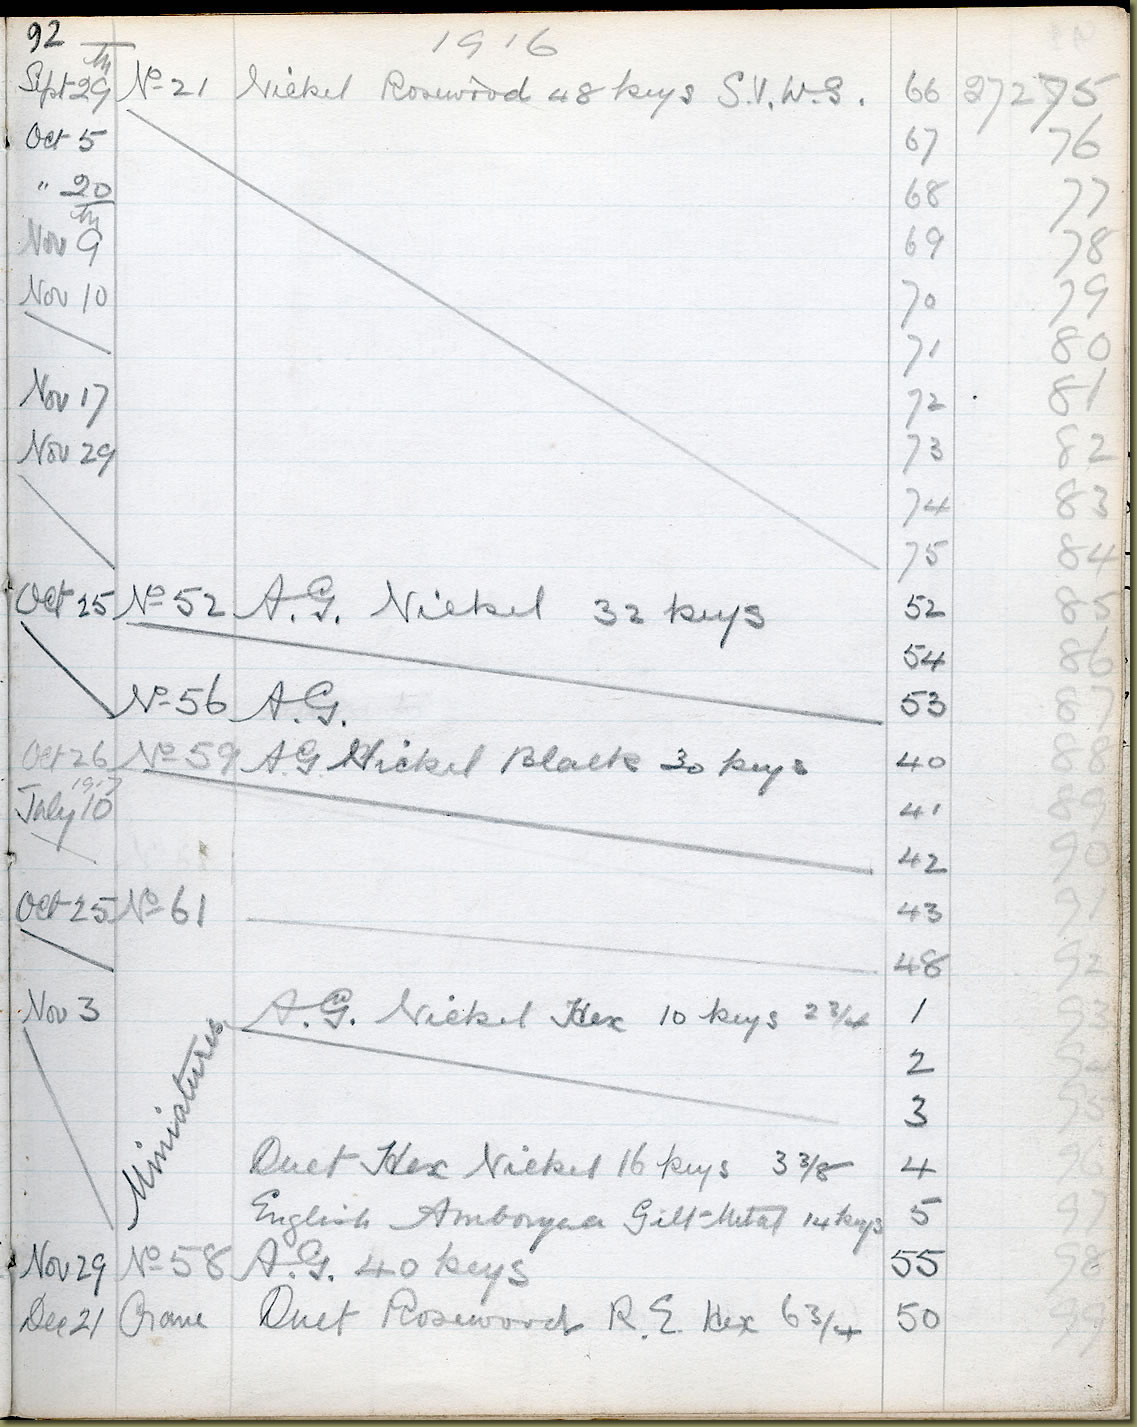 92 1916
Sept 29th No 21 Nickel Rosewood 48 keys S.V.W.S. 66 27275
Oct 5 67 76
" 20 68 77
Nov 9th 69 78
Nov 10 70 79
71 80
Nov 17 72 81
Nov 29 73 82
74 83
75 84
Oct 25 No 52 A.G. Nickel 32 keys 52 85
54 86
No 56 A.G. 53 87
Oct 26 No 59 A.G Nickel Black 30 keys 40 88
July 10 1917 41 89
42 90
Oct 25 No 61 43 91
48 92
Nov 3 Miniatures A.G. Nickel Hex 10 keys 2 3/4 1 93
2
3 95
Duet Hex Nickel 16 keys 3 3/8 4
English Amboyna Gilt-Metal 14 keys 5 97
Nov 29 No 58 A.G. 40 keys 55 98
Dec 21 Crane Duet Rosewood R.E. Hex 6 3/4 50 99